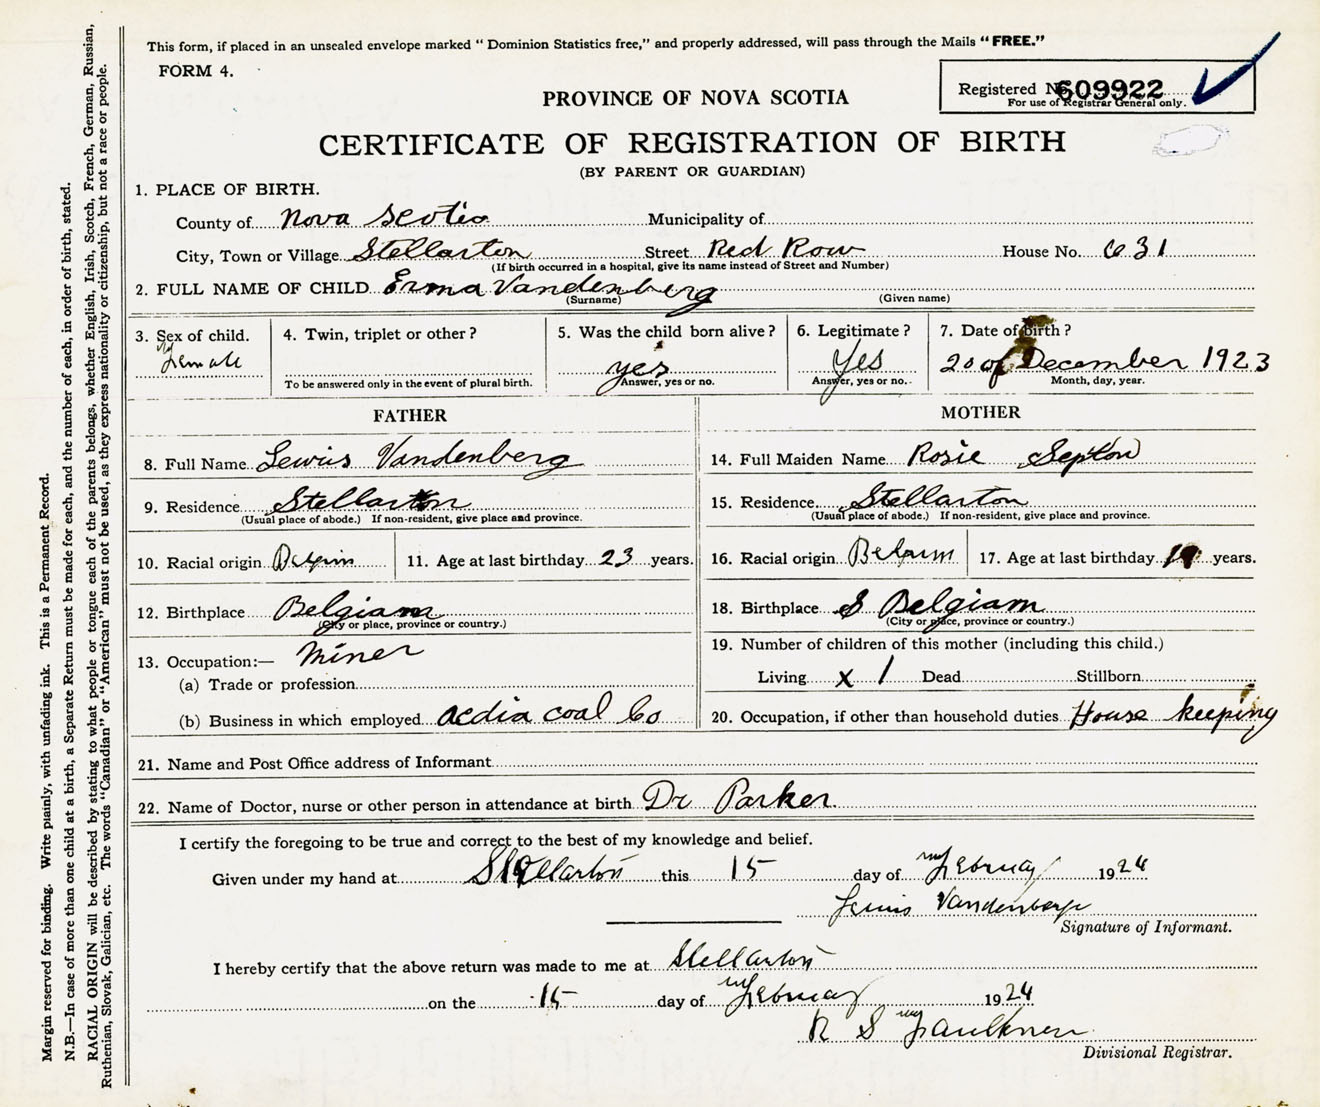 This form, if placed in an unsealed envelope marked “ Dominion Statistics free,” and properly addressed, will pass through the Mails “ FREE.”
FORM 4.
Registered No. 609922
For use of Registrar General only.
PROVINCE OF NOVA SCOTIA
CERTIFICATE OF REGISTRATION OF BIRTH
(BY PARENT OR GUARDIAN)
1. PLACE OF BIRTH.
County of Nova Scotia Municipality of
City, Town or Village Stellarton Street Red Row House No. 631
(If birth occurred in a hospital, give its name instead of Street and Number)
2. FULL NAME OF CHILD Erma Vandenberg
(Surname) (Given name)
3. Sex of child. 4. Twin, triplet or other ? 5. Was the child born alive ? 6. Legitimate ? 7. Date of birth ?
female yes Yes 20 of December 1923
To be answered only in the event of plural birth. Answer, yes or no. Answer, yes or no. Month, day, year.
FATHER MOTHER
8. Full Name Lewis Vandenberg 14. Full Maiden Name Rosie Septon
9. Residence Stellarton 15. Residence Stellarton
(Usual place of abode.) If non-resident, give place and province. (Usual place of abode.) If non-resident, give place and province.
10. Racial origin 11. Age at last birthday 23 years. 16. Racial origin 17. Age at last birthday 19 years.
12. Birthplace Belgiam 18. Birthplace Belgiam
(City or place, province or country.) (City or place, province or country.)
13. Occupation:— Miner 19. Number of children of this mother (including this child.)
(a) Trade or profession Living x 1 Dead Stillborn
(b) Business in which employed acdia coal Co 20. Occupation, if other than household duties House keeping
21. Name and Post Office address of Informant
22. Name of Doctor, nurse or other person in attendance at birth Dr Parker.
I certify the foregoing to be true and correct to the best of my knowledge and belief.
Given under my hand at Stellarton this 15 day of February 1924
Vandenberge
Signature of Informant.
I hereby certify that the above return was made to me at Stellarton
on the 15 day of February 1924
R S Faulkner
Divisional Registrar.
Margin reserved for binding. Write plainly, with unfading ink. This is a Permanent Record.
N.B.—In case of more than one child at a birth, a Separate Return must be made for each, and the number of each, in order of birth, stated.
RACIAL ORIGIN will be described by stating to what people or tongue each of the parents belongs, whether English, Irish, Scotch, French, German, Russian,
Ruthenian, Slovak, Galician, etc. The words “Canadian” or “American” must not be used, as they express nationality or citizenship, but not a race or people.